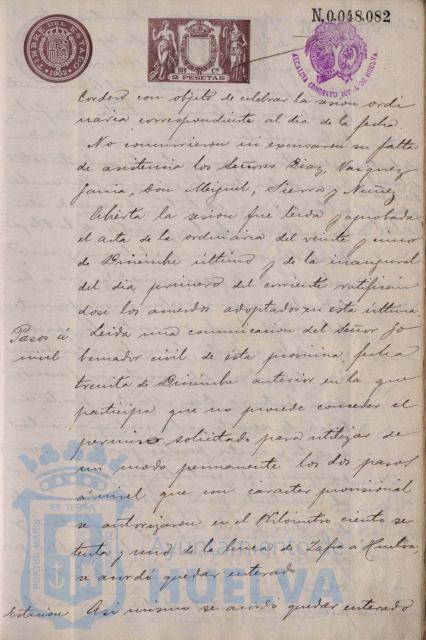 N.0.048.082
TIMBRE DEL ESTADO
1902
2 PESETAS
ALCALDIA CONSTITUCIONAL DE HUELVA
Cordero con objeto de celebrar la sesion ordi
naria correspondiente al dia de la fecha.
No concurrieron ni excusaron su falta
de asistencia los Señores Diaz, Vazquez
Garcia, Don Miguel, Sierra y Nuñez
Abierta la sesion fué leida y aprobada
el acta de la ordinaria del veinte y cinco
de Diciembre último y de la inaugural
del dia primero del corriente ratifican
dose los acuerdos adoptados en esta última.
Pasos á
nivel
Leida una comunicacion del Señor Go
bernador civil de ésta provincia, fecha
treinta de Diciembre anterior en la que
participa que no procede conceder el
permiso solicitado para utilizar de
un modo permanente los dos pasos
a nivel que con caracter provisional
se autorizaron en el Kilómetro ciento se
tenta y uno de la linea de Zafra á Huelva,
se acordó quedar enterado
Estacion
Asi mismo se acordó quedar enterado
PORTUS MARIS ET TERRAE
Ayuntamiento de
HUELVA